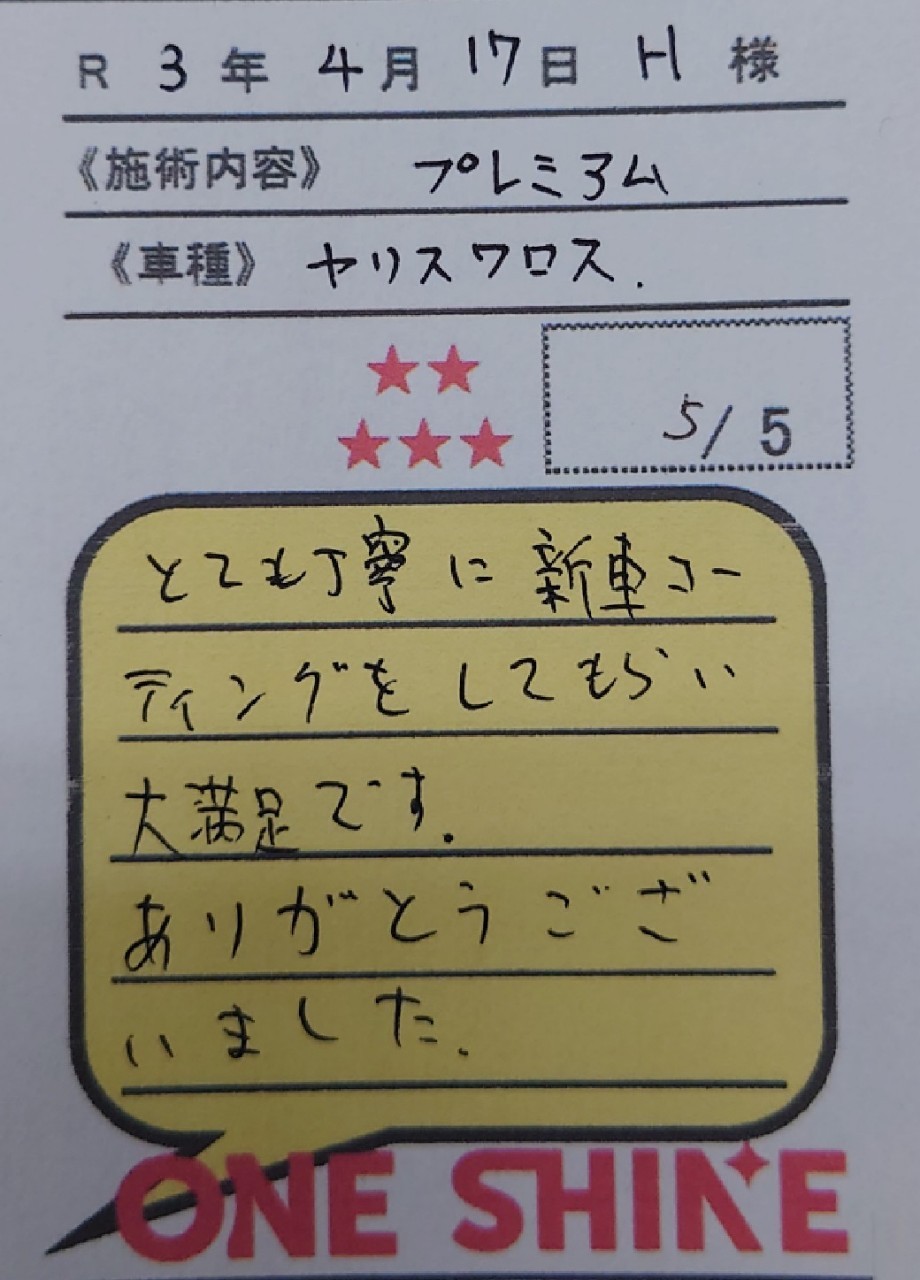 R 3年 4月 17日 H 様
《施術内容》 プレミアム
《車種》 ヤリスクロス.
5/5
とても丁寧に新車コー
ティングをしてもらい
大満足です.
ありがとうござ
いました.
ONE SHINE